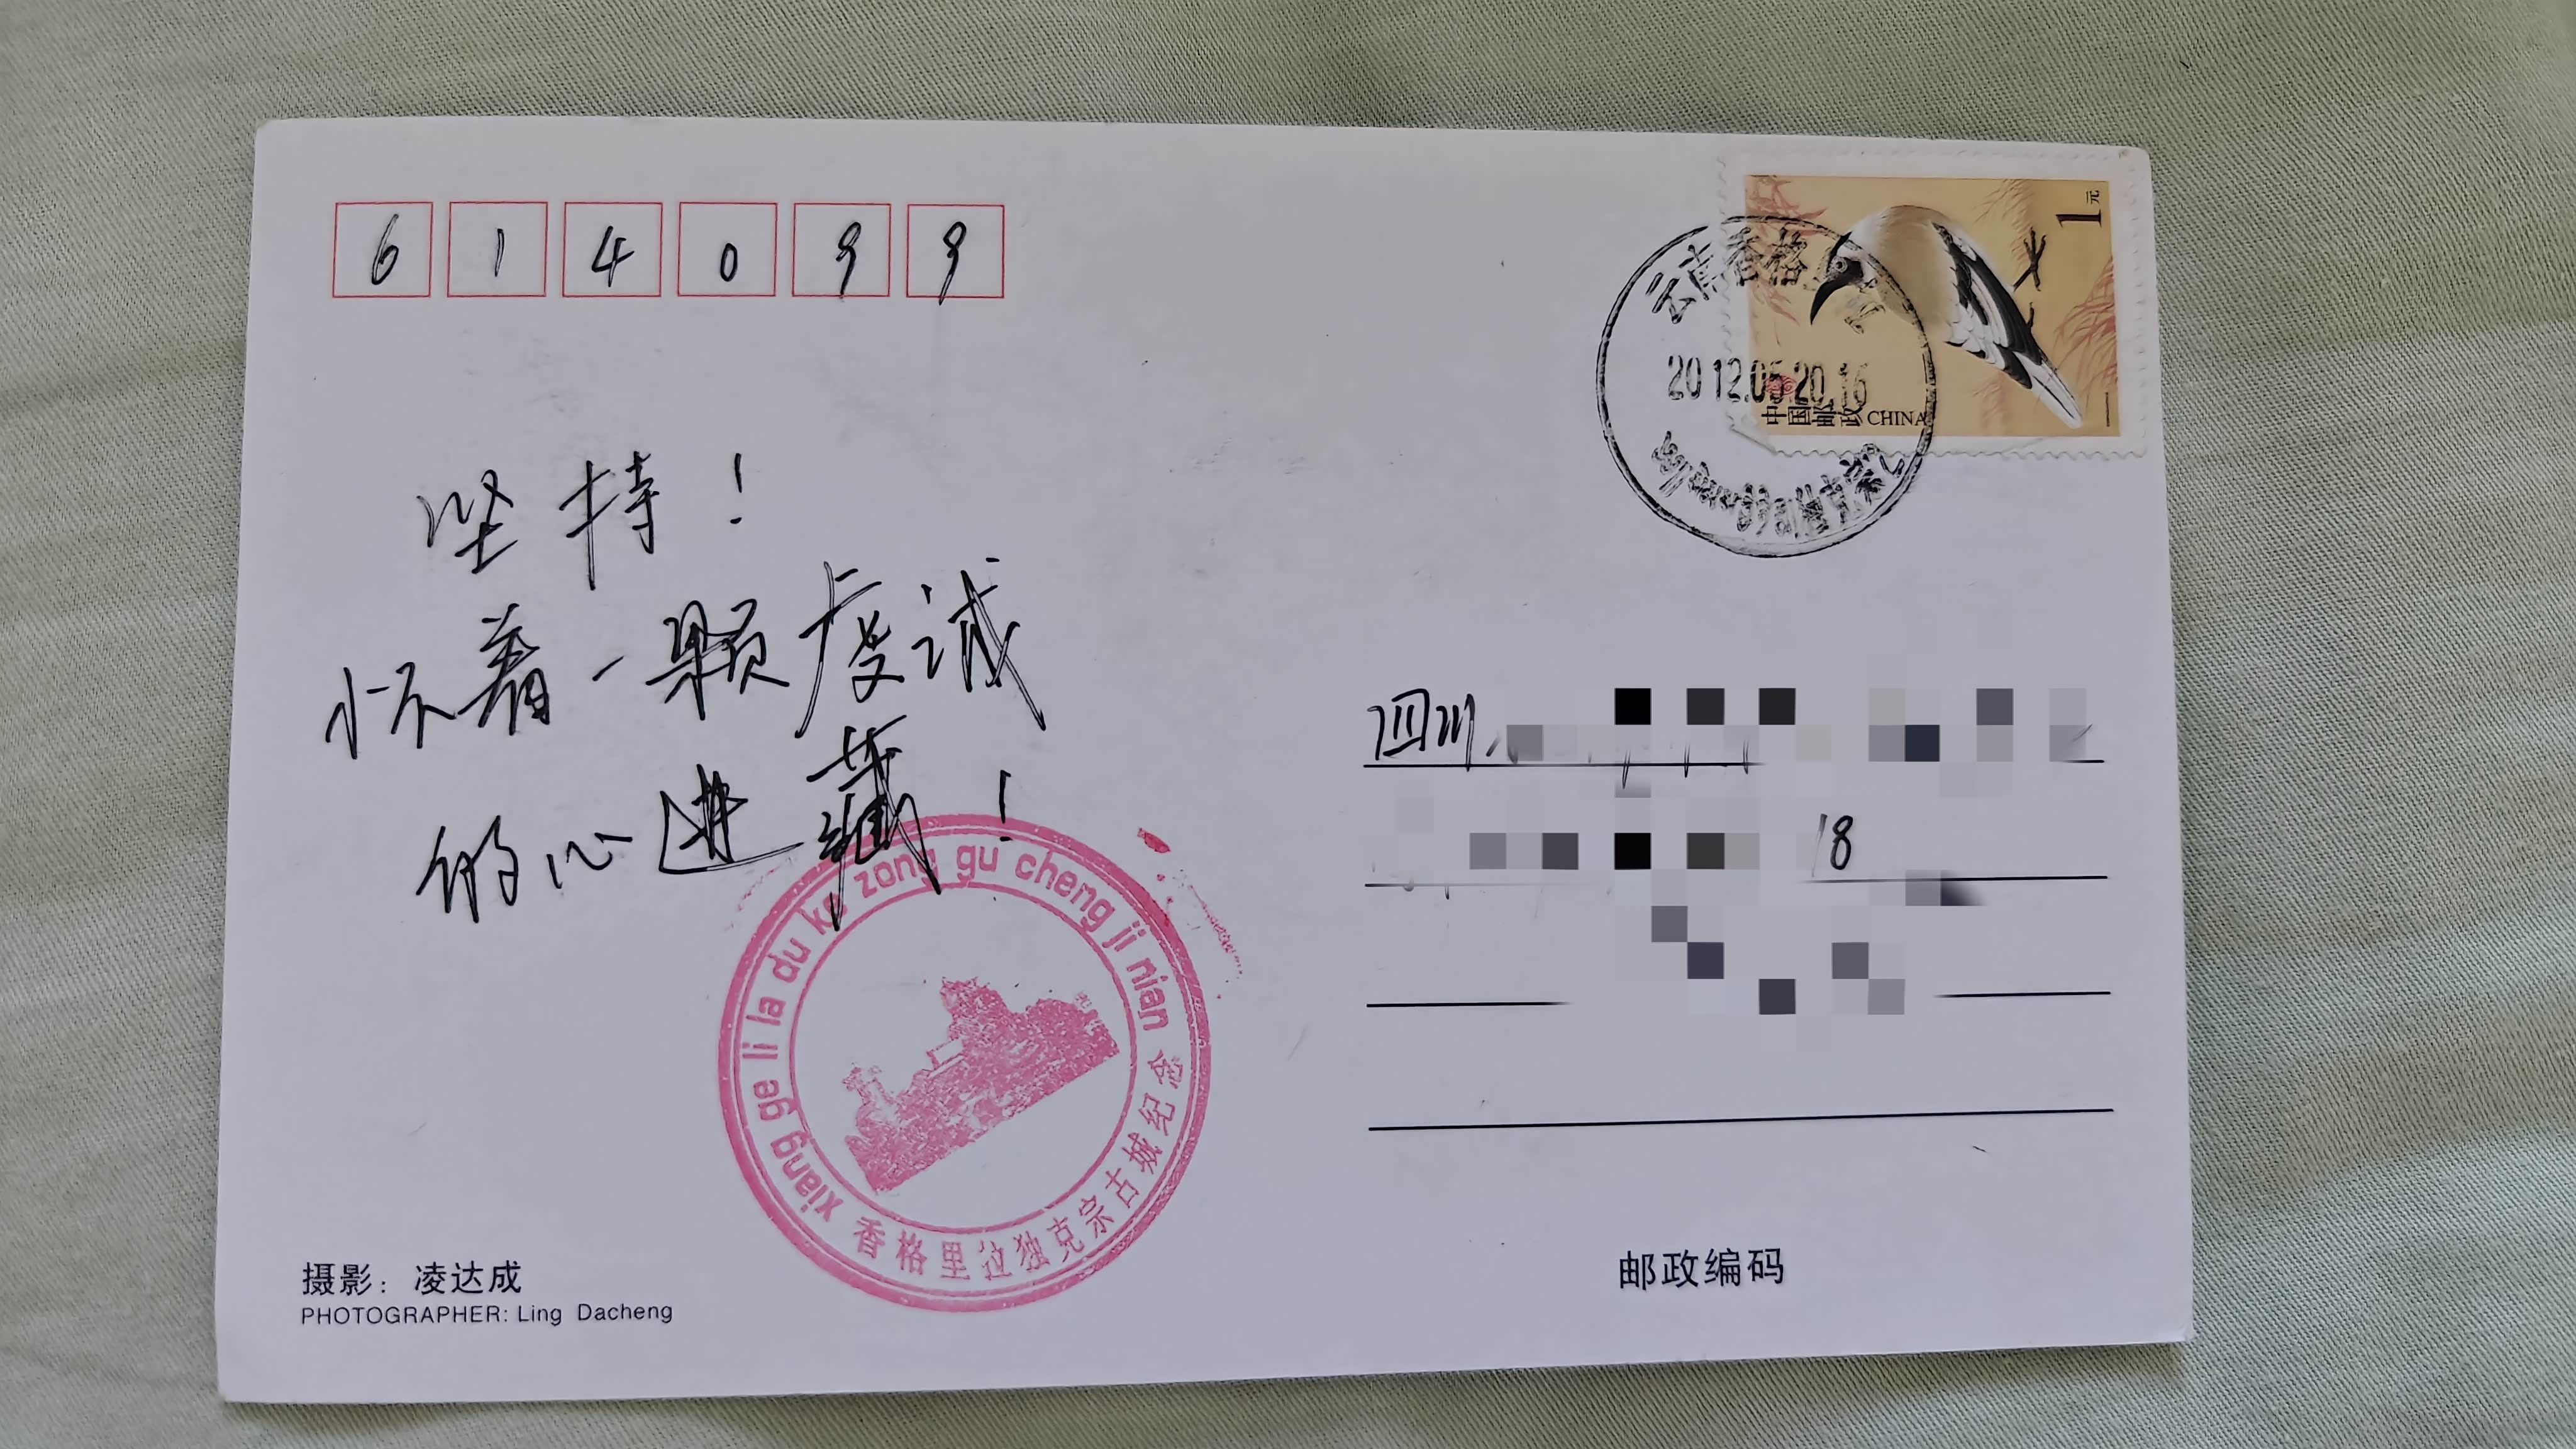 614099
1元
中国邮政 CHINA
云南香格里
2012.05.20.16
坚持！
怀着一颗虔诚
的心进藏！
四川
18
xiang ge li la du ke zong gu cheng ji nian
香格里拉独克宗古城纪念
摄影：凌达成
PHOTOGRAPHER: Ling Dacheng
邮政编码